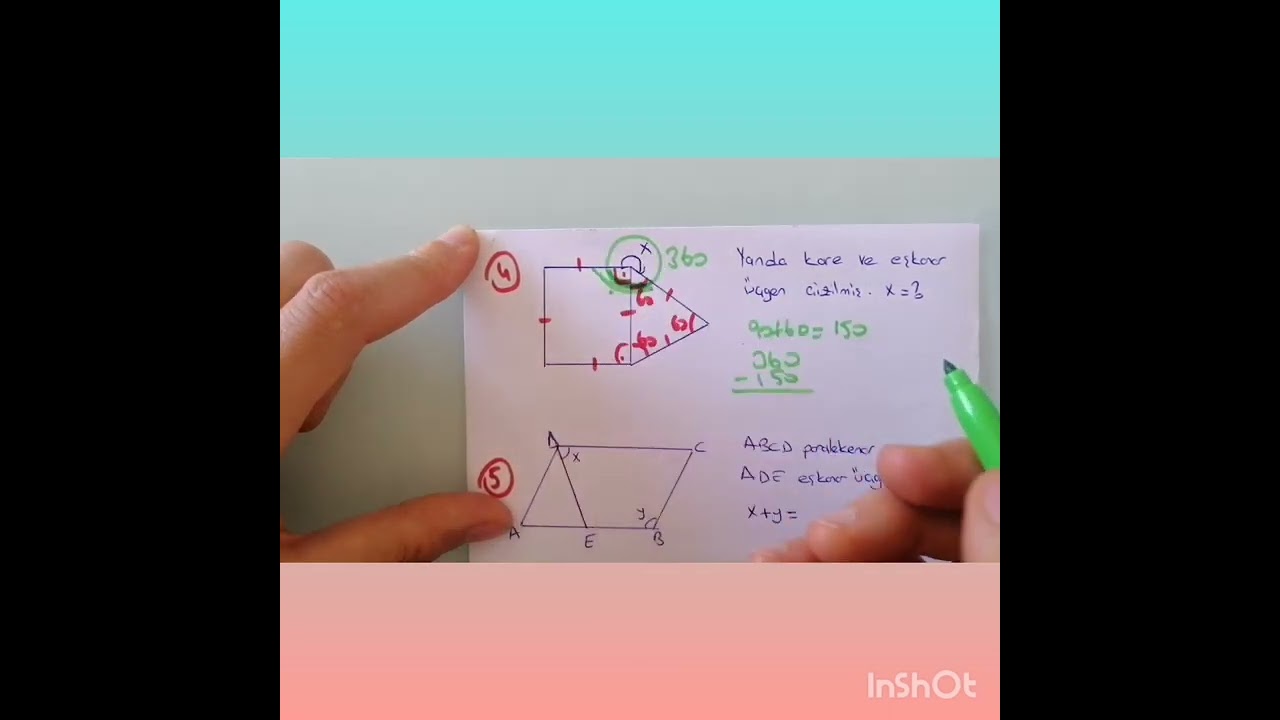 4
x
360
60
60
60
Yanda kare ve eşkenar
üçgen çizilmiş. x=?
90+60=150
360
-150
5
D
C
x
y
A
E
B
ABCD paralelkenar
ADE eşkenar üçg
x+y=
InShOt